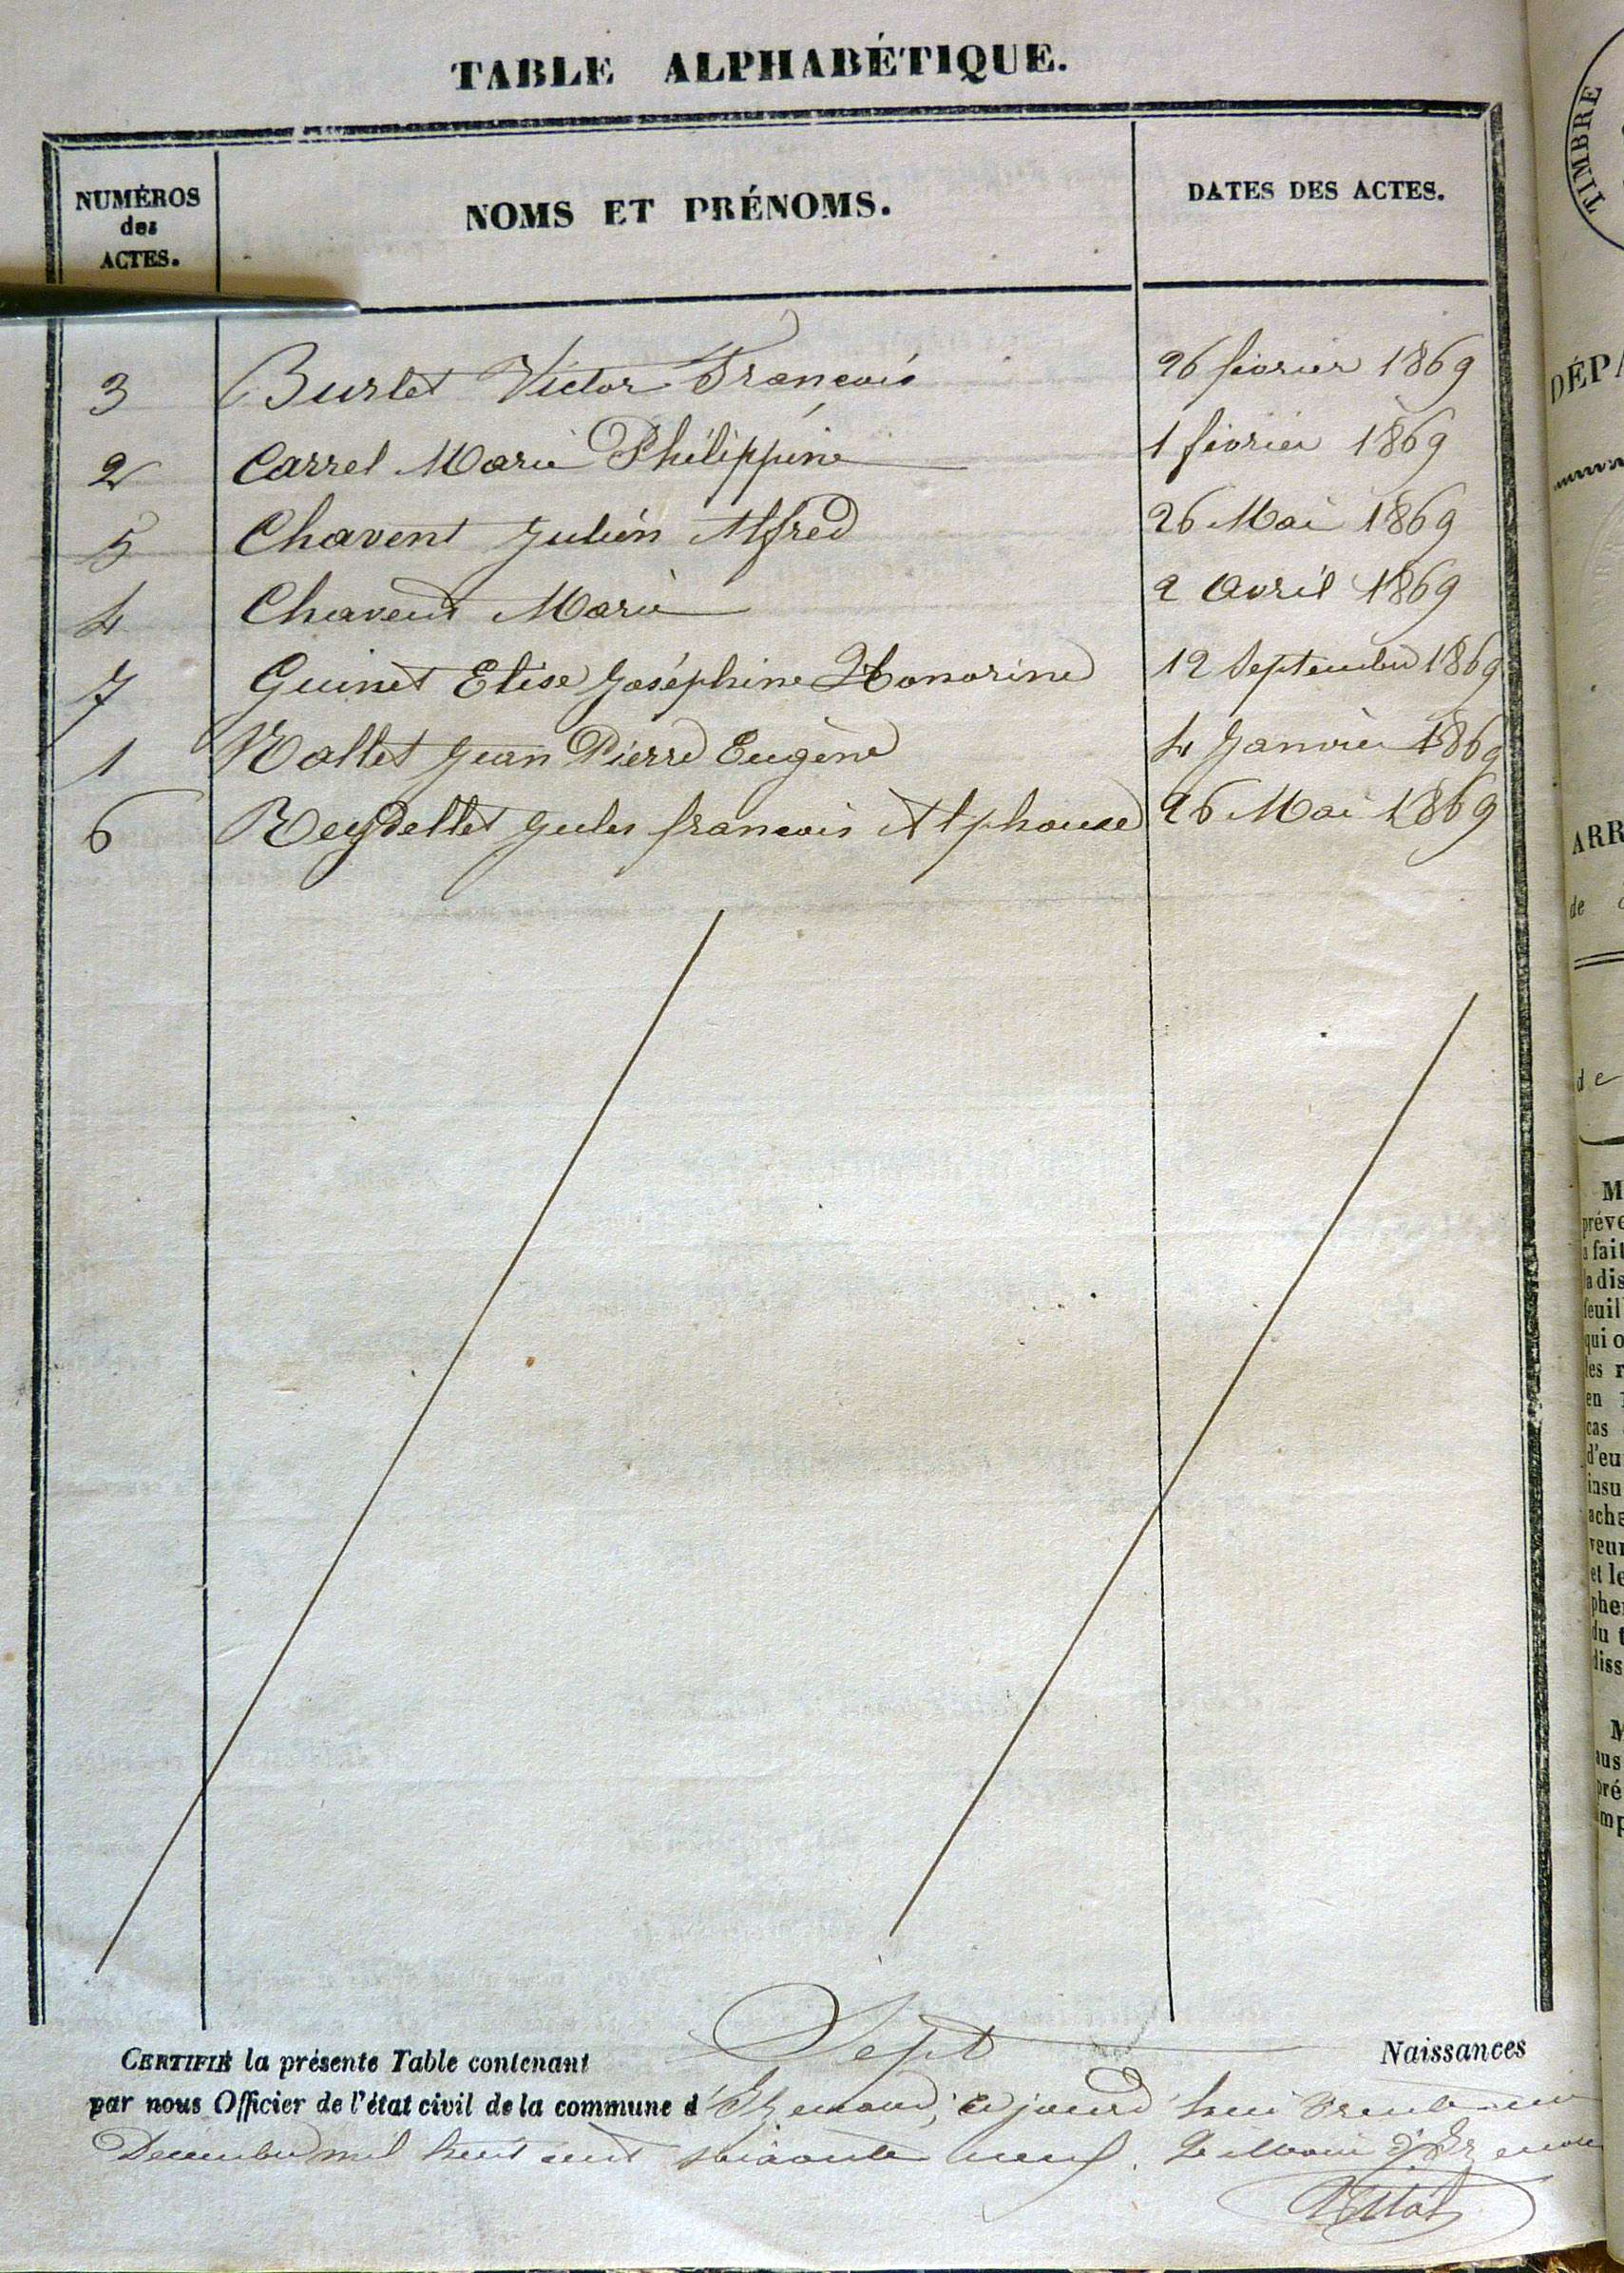 TABLE ALPHABÉTIQUE.
NUMÉROS
des
ACTES.
NOMS ET PRÉNOMS.
DATES DES ACTES.
3 Burlet Victor François 26 février 1869
2 Carrel Marie Philippine 1 février 1869
5 Chavent Julien Alfred 26 Mai 1869
4 Chavent Marie 2 Avril 1869
7 Guinet Elise Joséphine Honorine 12 Septembre 1869
1 Mollet Jean Pierre Eugène 4 Janvier 1869
6 Reydellet Jules francois Alphonse 26 Mai 1869
CERTIFIÉ la présente Table contenant Sept Naissances
par nous Officier de l'état civil de la commune d'Izenave, ce jourd'hui trente un
Decembre mil huit cent soixante neuf. Le Maire d'Izenave
TIMBRE
DÉPA
ARR
de
de
M
préve
a fait
la dis
feuil
qui o
les r
en
cas
d'eu
insu
ache
veur
et le
phe
du t
diss
M
aus
pré
imp